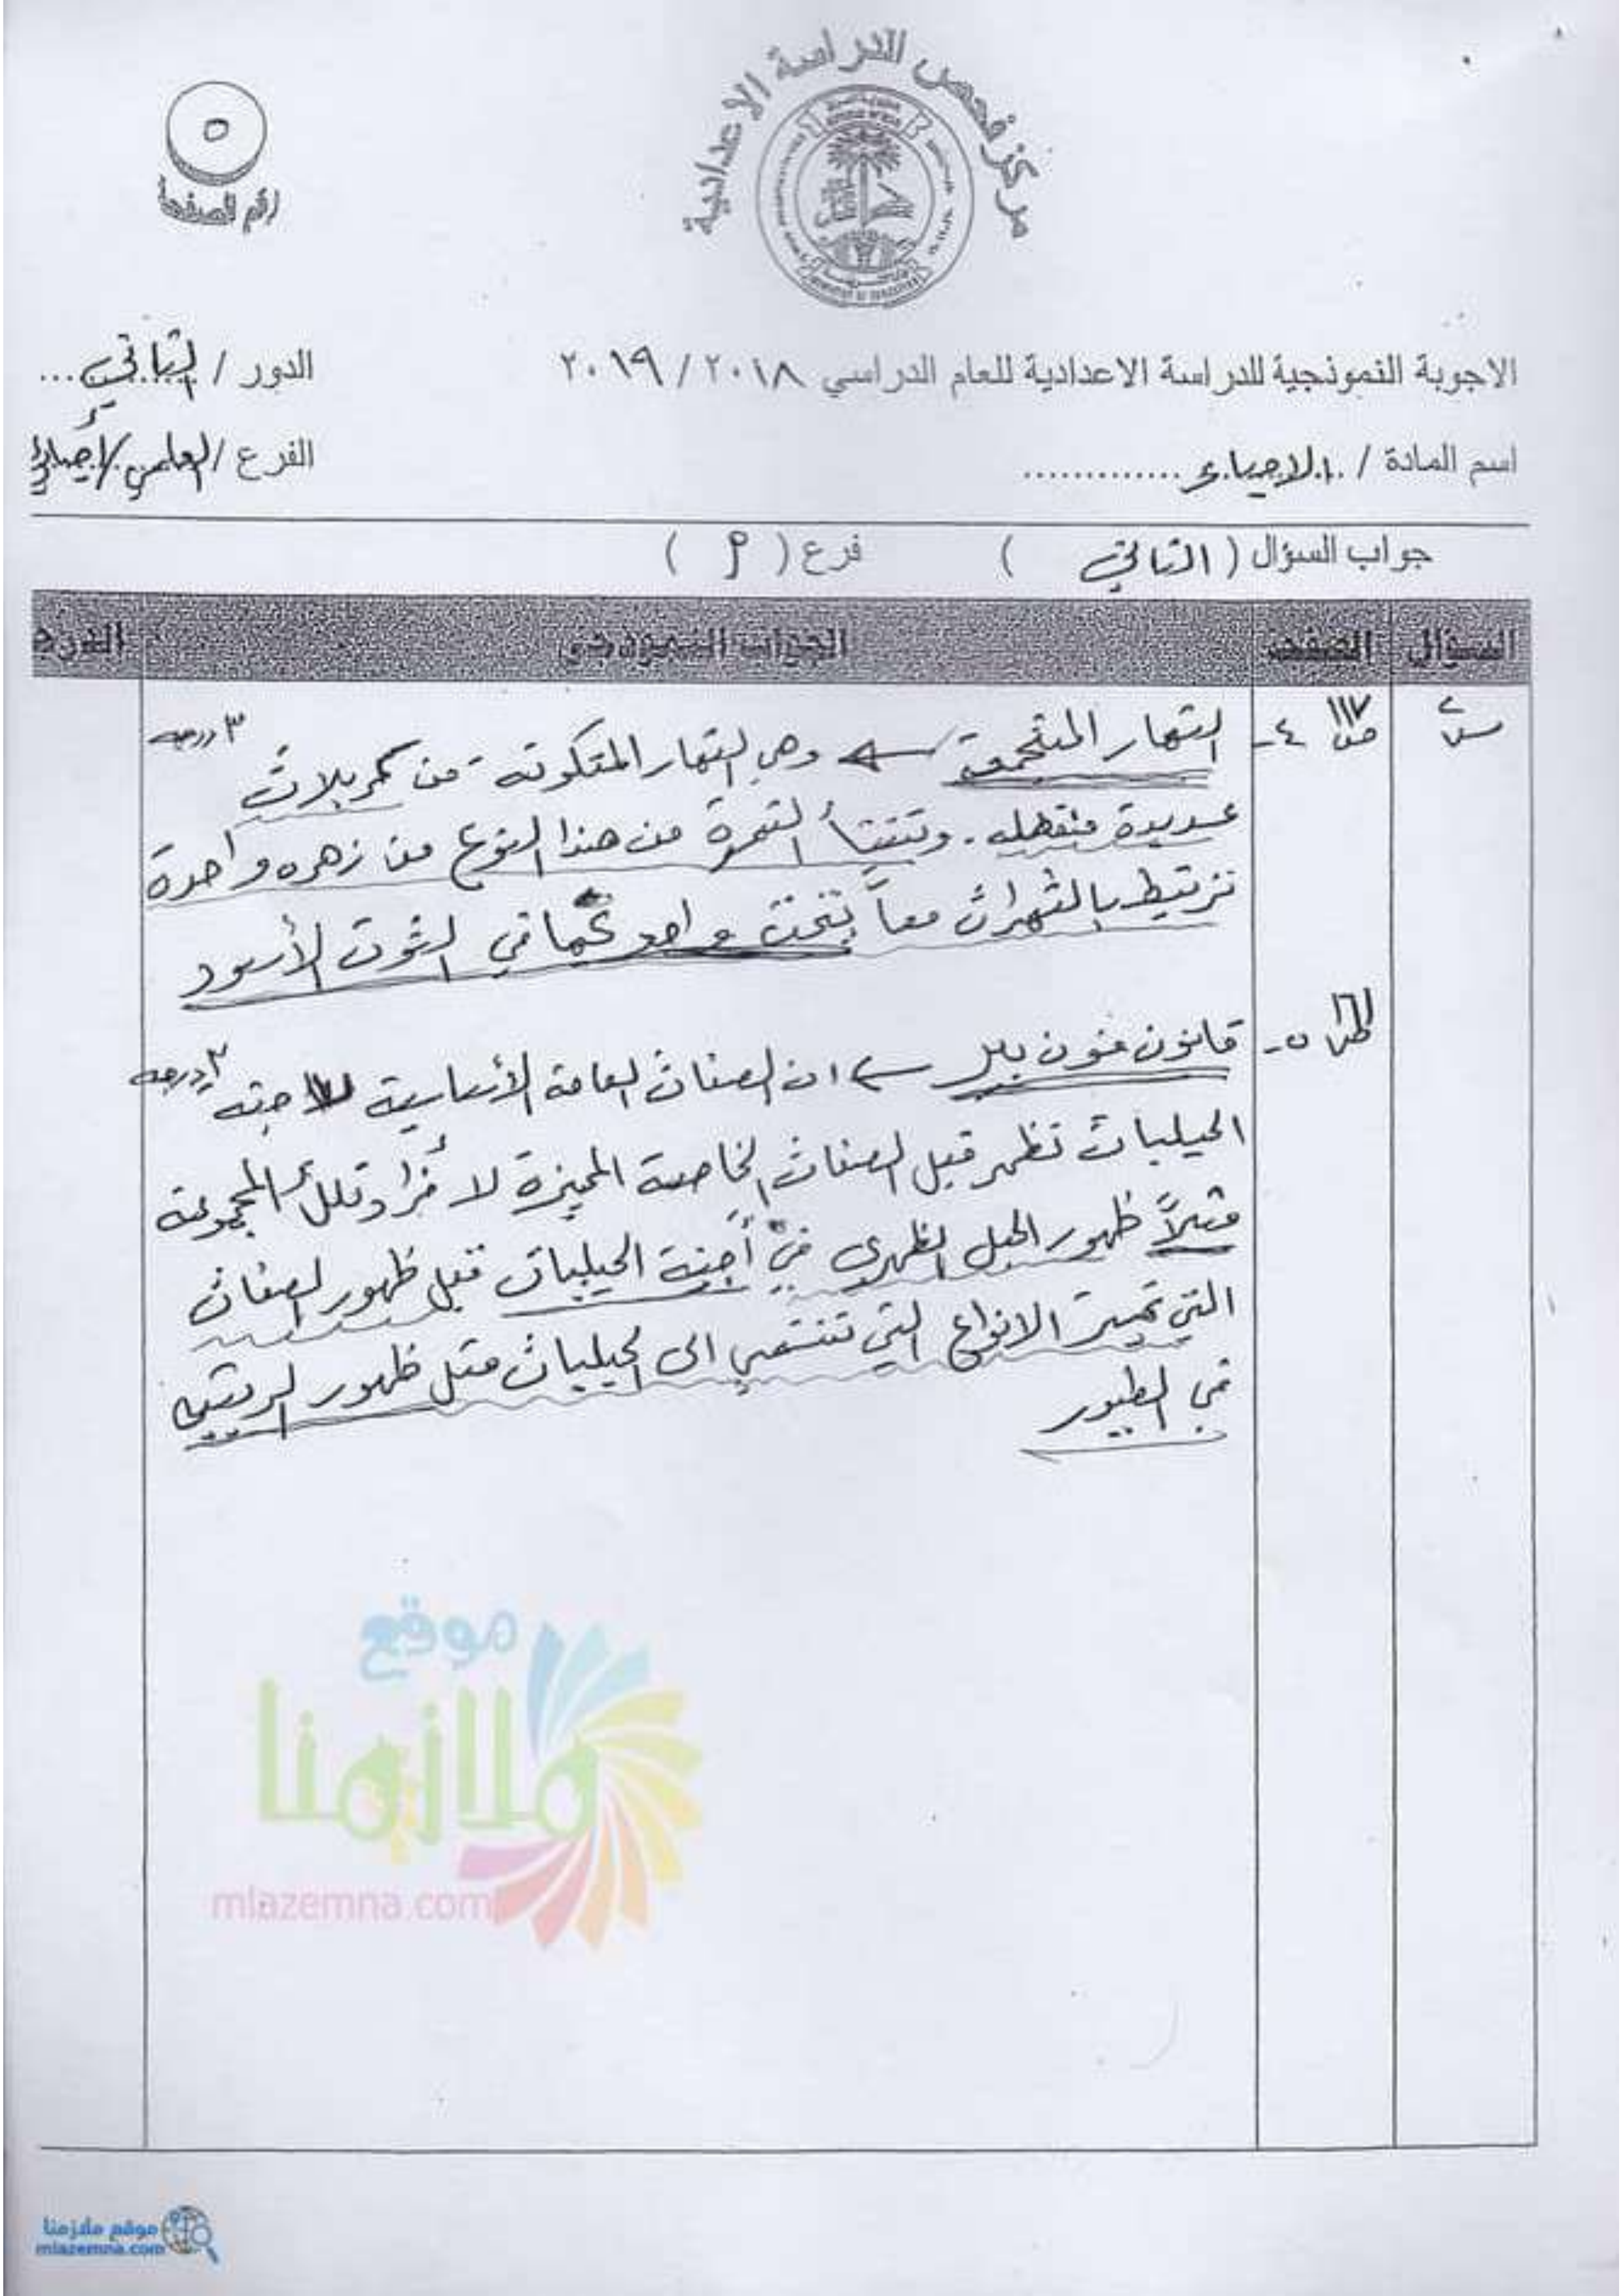 مركز فحص الدراسة الاعدادية
٥
رقم الصفحة
الاجوبة النموذجية للدراسة الاعدادية للعام الدراسي ٢٠١٨ / ٢٠١٩
الدور / الثاني...
اسم المادة / .الاحياء.............
الفرع / العلمي / أحيائي
جواب السؤال ( الثاني ) فرع ( P )
السؤال الصفحة الجواب النموذجي الدرجة
س٢ ص١١٧ ٤- الثمار المتجمعة ← وهي الثمار المتكونة من كربلات ٣ درجه
عديدة منفصله. وتنشأ الثمرة من هذا النوع من زهره واحدة
ترتبط بالثمرات معاً بتخت واحد كما في التوت الأسود
٥- قانون فون بير ← ان الصفات العامة الأساسية لاجنه ٢ درجه
الحبليات تظهر قبل الصفات الخاصة المميزة لأفراد تلك المجموعة
مثلاً ظهور الحبل الظهري في أجنة الحبليات قبل ظهور الصفات
التي تميز الانواع التي تنتمي الى الحبليات مثل ظهور الريش
في الطيور
موقع
ملازمنا
mlazemna.com
موقع ملازمنا
mlazemna.com